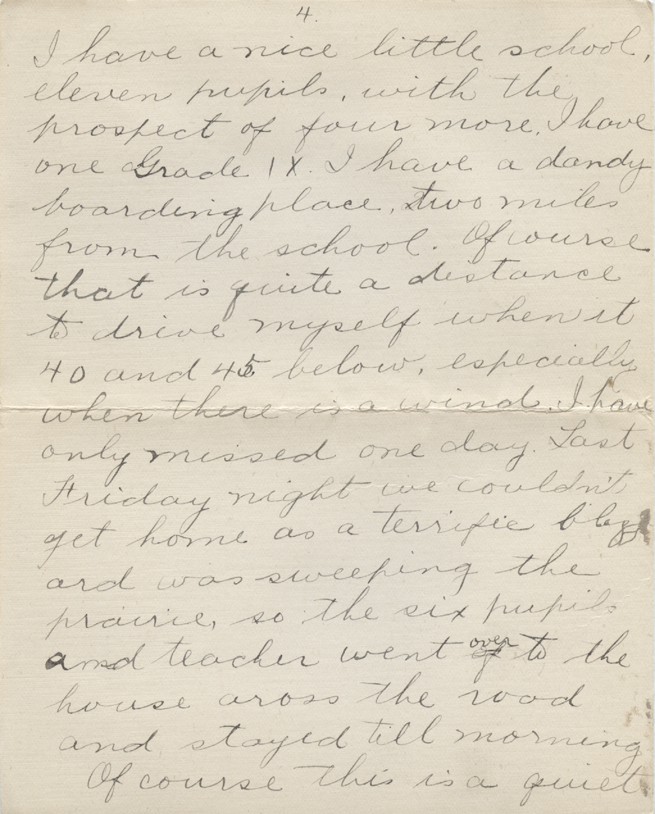 4.
I have a nice little school,
eleven pupils, with the
prospect of four more. I have
one Grade IX. I have a dandy
boarding place, two miles
from the school. Of course
that is quite a distance
to drive myself when it
40 and 45 below, especially
when there is a wind. I have
only missed one day. Last
Friday night we couldn't
get home as a terrific blizz
ard was sweeping the
prairie, so the six pupils
and teacher went over to the
house aross the road
and stayed till morning
Of course this is a quiet